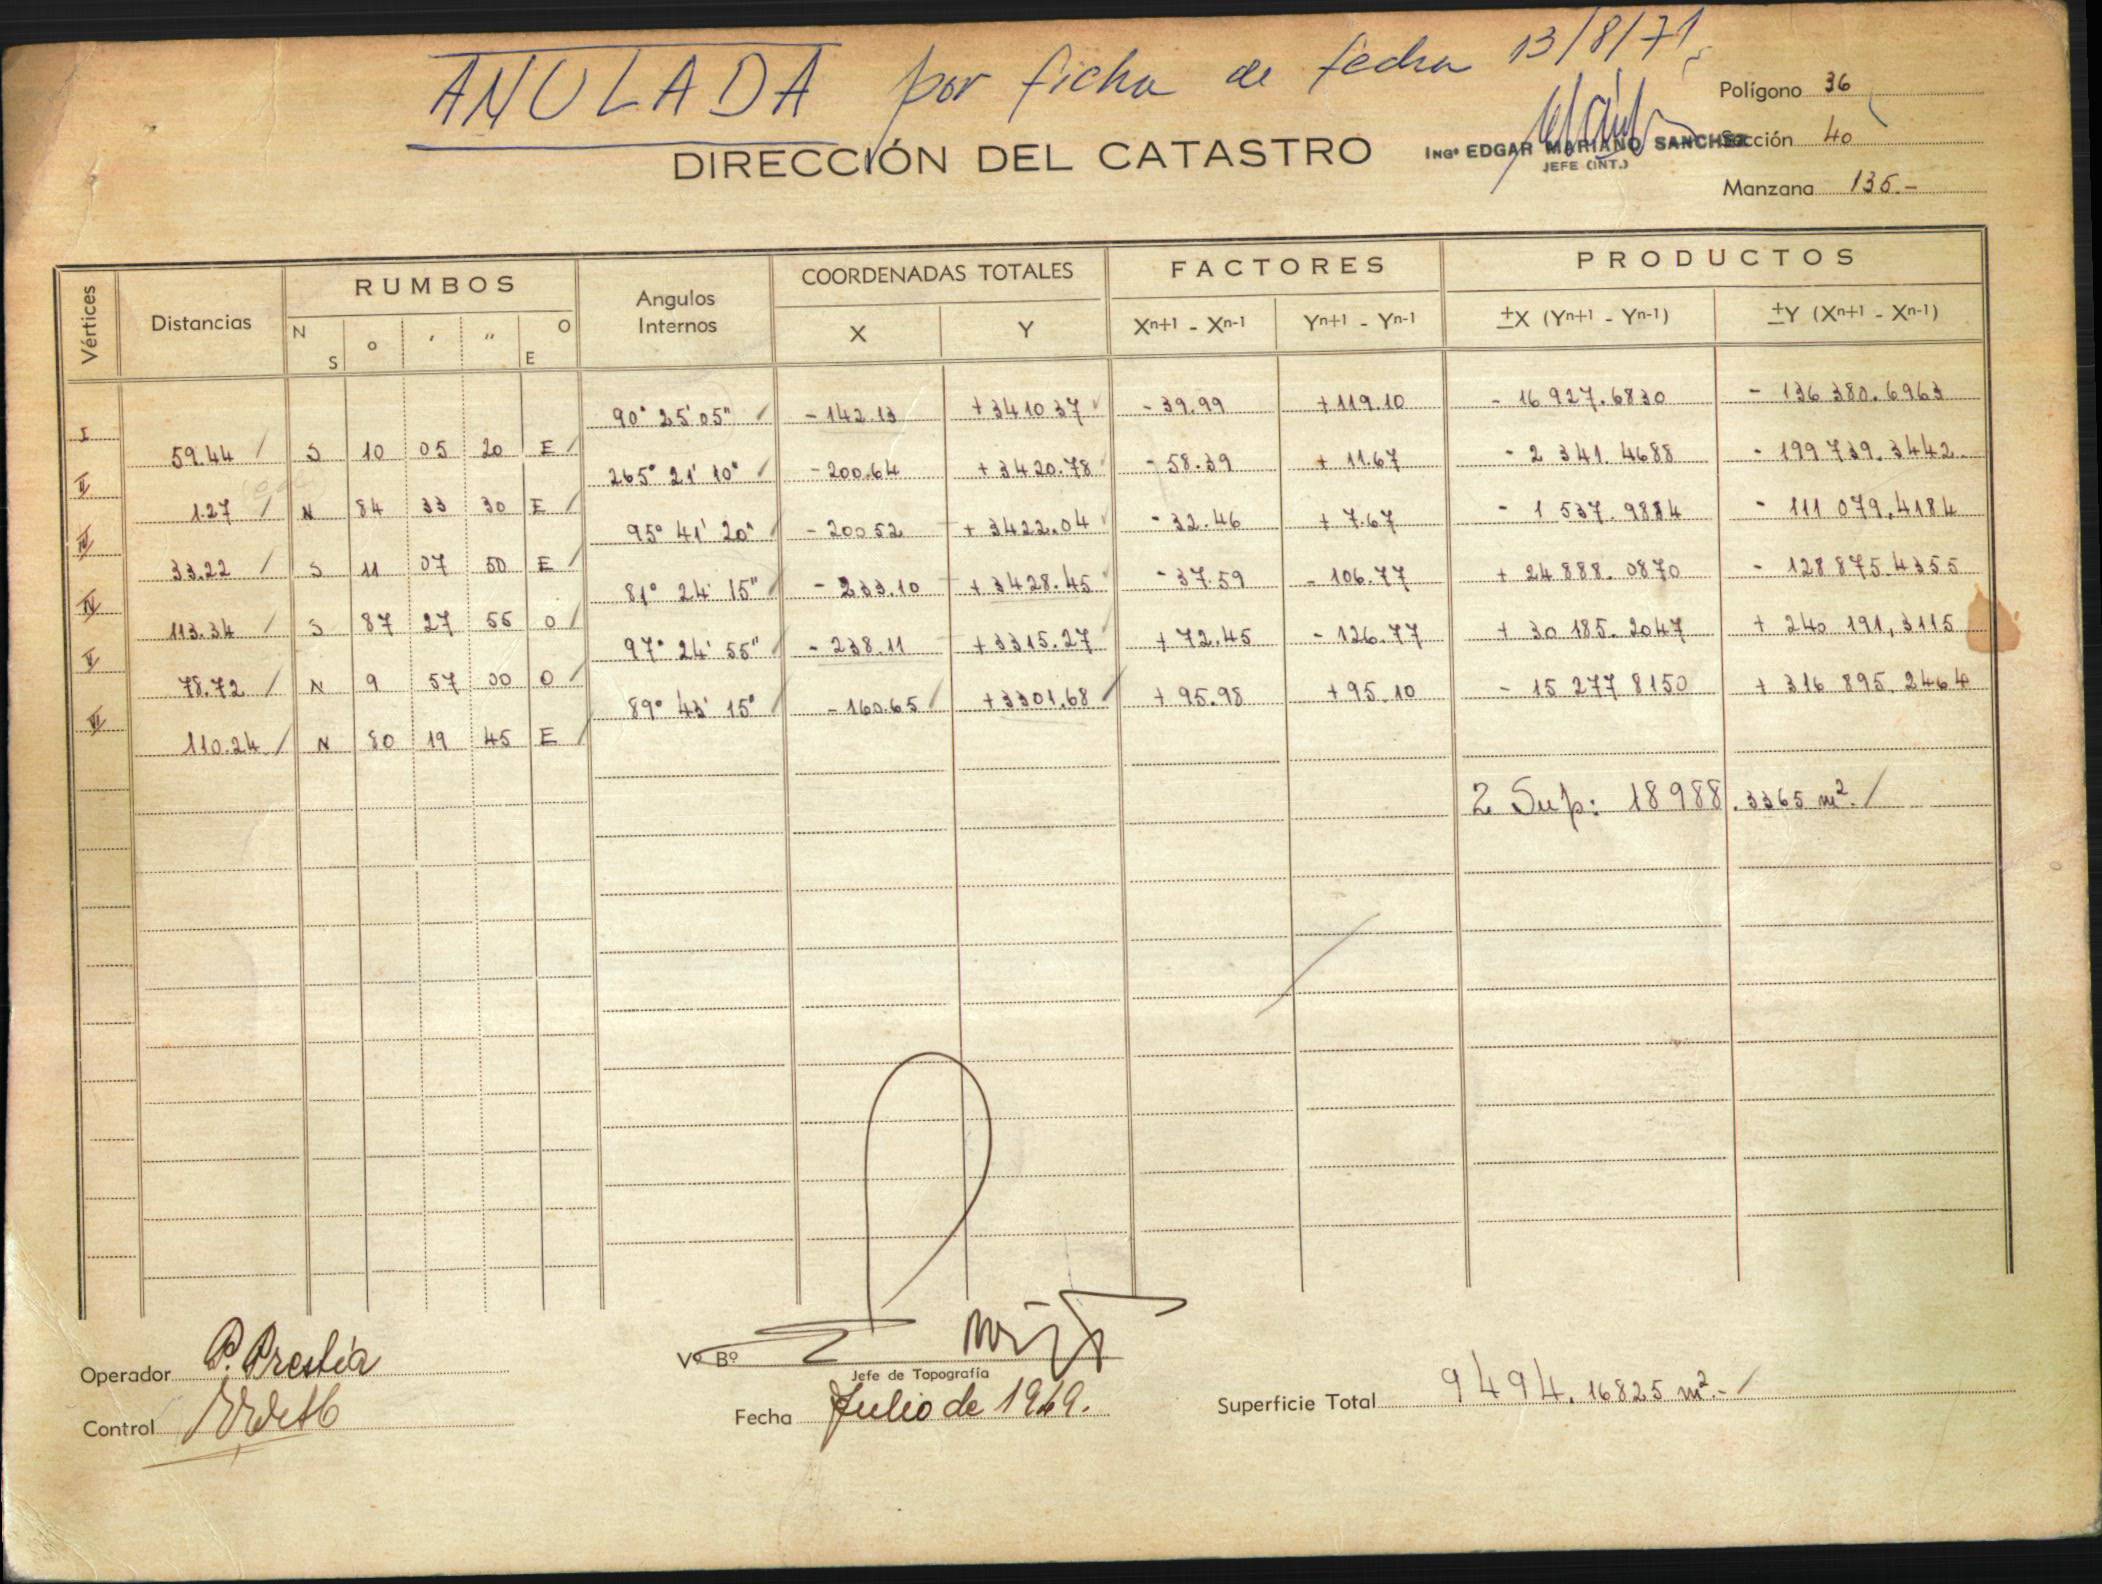 ANULADA por ficha de fecha 13/8/71
Polígono 36
DIRECCIÓN DEL CATASTRO
INGº EDGAR MARIANO SANCHEZ
JEFE (INT.)
Sección 40
Manzana 135.-
Vértices
Distancias
RUMBOS
N S ° ' " O E
Angulos Internos
COORDENADAS TOTALES
X Y
FACTORES
Xn+1 - Xn-1 Yn+1 - Yn-1
PRODUCTOS
±X (Yn+1 - Yn-1) ±Y (Xn+1 - Xn-1)
I 90° 25' 05" - 142.13 + 3410 37 - 39.99 + 119.10 - 16 927.6830 - 136 380.6963
59.44 S 10 05 20 E
II 265° 21' 10" - 200.64 + 3420.78 - 58.39 + 11.67 - 2 341.4688 - 199 739.3442
1.27 N 84 33 30 E
III 95° 41' 20" - 200 52 + 3422.04 - 32.46 + 7.67 - 1 537.9884 - 111 079.4184
33.22 S 11 07 50 E
IV 81° 24' 15" - 233.10 + 3428.45 - 37.59 - 106.77 + 24 888.0870 - 128 875.4355
113.34 S 87 27 55 O
V 97° 24' 55" - 238.11 + 3315.27 + 72.45 - 126.77 + 30 185.2047 + 240 191,3115
78.72 N 9 57 00 O
VI 89° 43' 15" - 160.65 + 3301.68 + 95.98 + 95.10 - 15 277 8150 + 316 895.2464
110.24 N 80 19 45 E
2 Sup: 18988.3365 m².
Operador P. Prestia
Vº Bº
Jefe de Topografía
Control
Fecha Julio de 1969.
Superficie Total 9494.16825 m².-